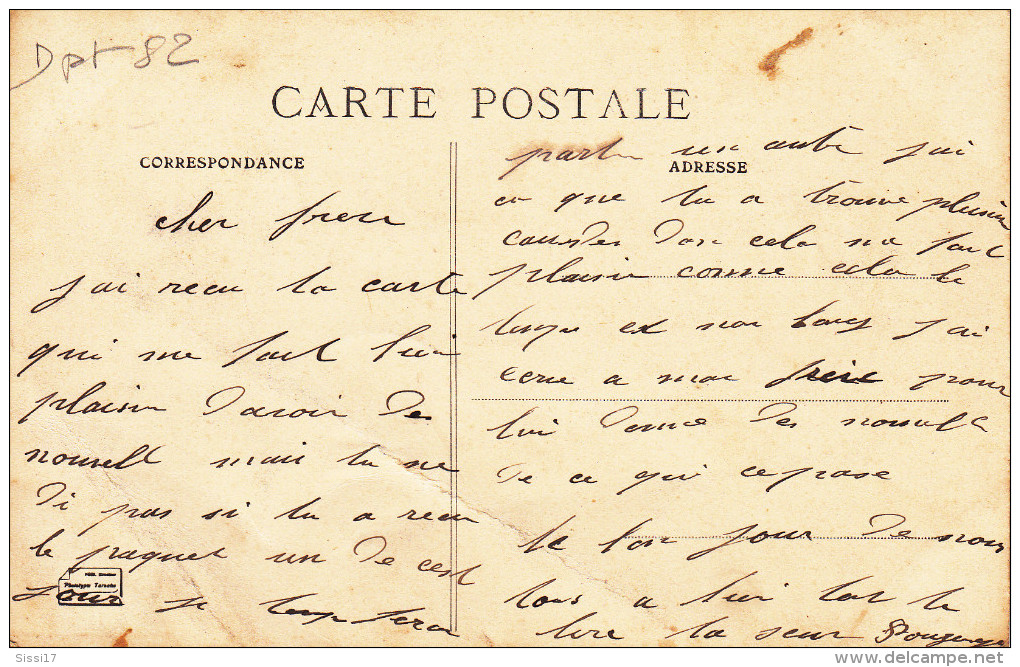 Dpt 82
CARTE POSTALE
CORRESPONDANCE
ADRESSE
cher frere
j'ai recu ta carte
qui me fait bien
plaisir davoir de
nouvell mais tu me
di pas si tu a recu
le paquet un de cest
jour je ferer
partir un autre jai
ce que tu a trouve plaisir
don cela me fait
plaisir conme cela le
temps et mon long jai
ecrie a mon frere pour
lui donne des nouvelle
de ce qui ce pase
le bon jour de nous
tous a bien tot te
lire ta seur
Phototypie Tarnaise
Sissi17
www.delcampe.net